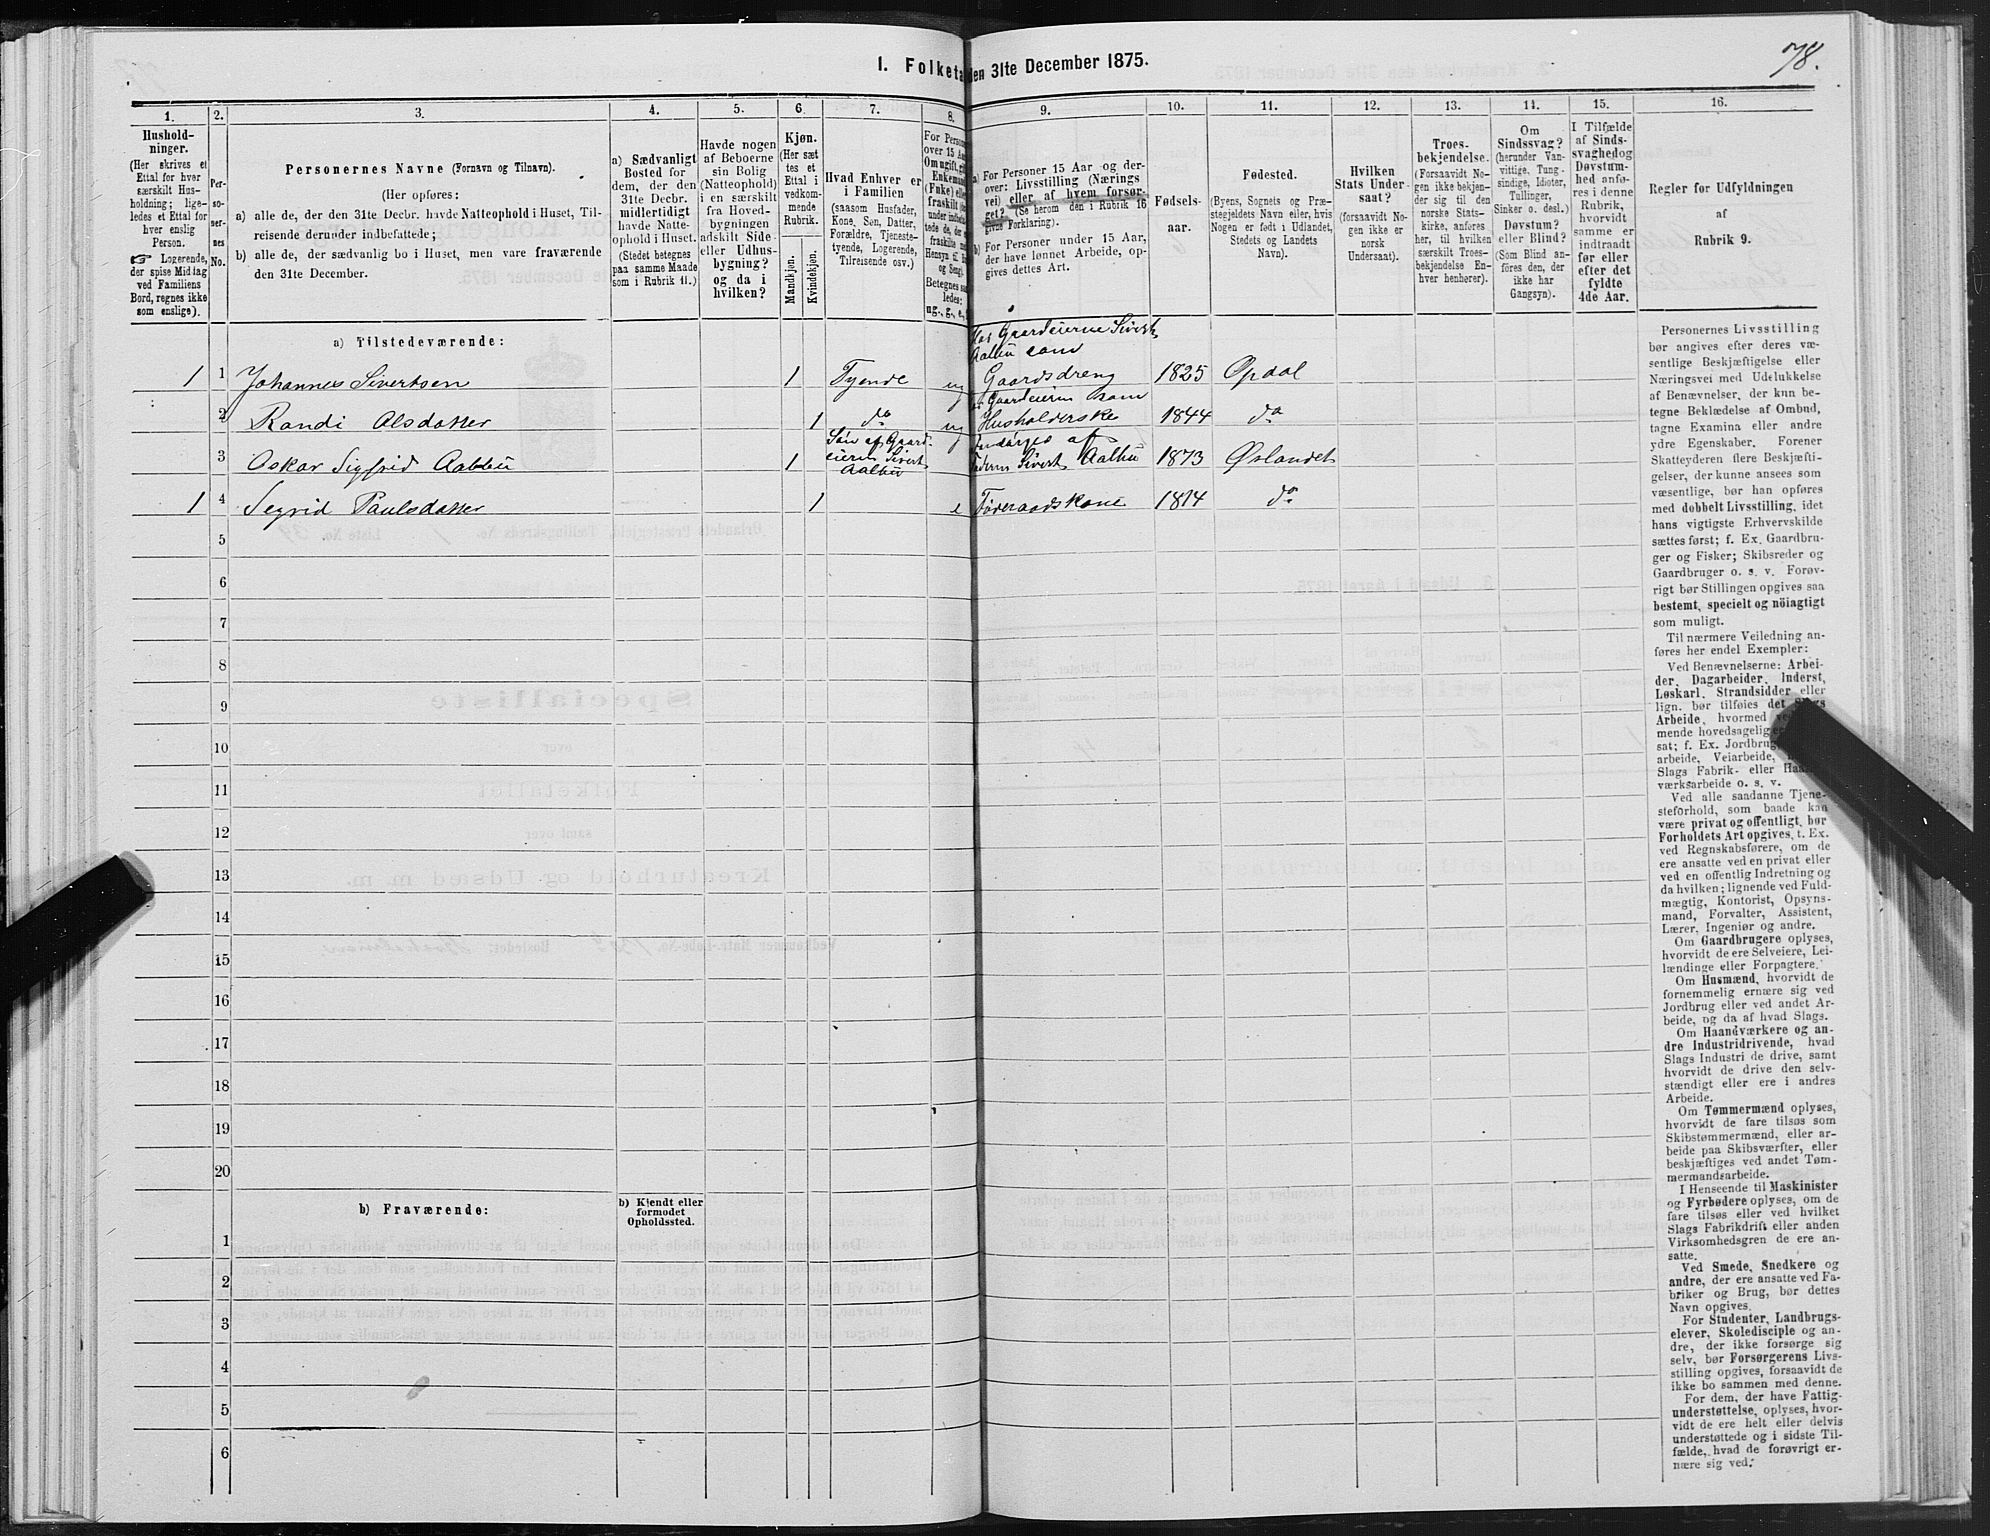 78.
I. Folketa
den 31te December 1875.
1.
Hushold-
ninger.
(Her skrives et
Ettal for hver
særskilt Hus-
holdning; lige-
ledes et Ettal for
hver enslig
Person.
☞ Logerende,
der spise Midtag
ved Familiens
Bord, regnes ikke
som enslige).
2.
Per-
so-
ner-
nes
No.
3.
Personernes Navne (Fornavn og Tilnavn).
(Her opføres:
a) alle de, der den 31te Decbr. havde Natteophold i Huset, Til-
reisende derunder indbefattede;
b) alle de, der sædvanlig bo i Huset, men vare fraværende
den 31te December.
4.
a) Sædvanligt
Bosted for
dem, der den
31te Decbr.
midlertidigt
havde Natte-
ophold i Huset.
(Stedet betegnes
paa samme Maade
som i Rubrik 11.)
5.
Havde nogen
af Beboerne
sin Bolig
(Natteophold)
i en særskilt
fra Hoved-
bygningen
adskilt Side-
eller Udhus-
bygning?
og da i
hvilken?
6.
Kjøn.
(Her sæt
tes et
Ettal i
vedkom-
mende
Rubrik.
Mandkjøn.
Kvindekjøn.
7.
Hvad Enhver er
i Familien
(saasom Husfader,
Kone, Søn, Datter,
Forældre, Tjeneste-
tyende, Logerende,
Tilreisende osv.)
8.
For Perso
over 15 Aa
Om ugift, gift
Enkemand
(Enke) elle
fraskilt
9.
a) For Personer 15 Aar og der-
over: Livsstilling (Nærings
vei) eller af hvem forsør-
get? (Se herom den i Rubrik 16
givne Forklaring).
b) For Personer under 15 Aar,
der have lønnet Arbeide, op-
gives dettes Art.
10.
Fødsels-
aar.
11.
Fødested.
(Byens, Sognets og Præ-
stegjeldets Navn eller, hvis
Nogen er født i Udlandet,
Stedets og Landets
Navn).
12.
Hvilken
Stats Under-
saat?
(forsaavidt No-
gen ikke er
norsk
Undersaat).
13.
Troes-
bekjendelse.
(Forsaavidt No-
gen ikke bekjen-
der sig til den
norske Stats-
kirke, anføres
her, til hvilken
særskilt Troes-
bekjendelse En-
hver henhører).
14.
Om
Sindssvag?
(herunder Van-
vittige, Tung-
sindige, Idioter,
Tullinger,
Sinker o. desl.)
Døvstum?
eller Blind?
(Som Blind an-
føres den, der
ikke har
Gangsyn).
15.
I Tilfælde
af Sinds-
svaghed og
Døvstum-
hed anfø-
res i denne
Rubrik,
hvorvidt
samme er
indtraadt
før eller
efter det
fyldte
4de Aar.
16.
Regler for Udfyldningen
af
Rubrik 9.
a) Tilstedeværende:
Hos Gaardeierne Sivert
Aalbu som
1 1 Johannes Sivertsen 1 Tyende ug Gaardsdreng 1825 Opdal
Gaardeieren som
2 Randi Olsdatter 1 do ug Husholderske 1844 do
Søn af Gaard-
eieren Sivert
Aalbu
Forsørges af
3 Oskar Sigfrid Aalbu 1 Faderen Sivert Aalbu 1873 Ørlandet
1 4 Segrid Paulsdatter 1 e Føderaadskone 1814 do
5
6
7
8
9
10
11
12
13
14
15
16
17
18
19
20
b) Fraværende:
b) Kjendt eller
formodet
Opholdssted.
1
2
3
4
5
6
Personernes Livsstilling
bør angives efter deres væ-
sentlige Beskjæftigelse eller
Næringsvei med Udelukkelse
af Benævnelser, der kun be-
tegne Beklædelse af Ombud,
tagne Examina eller andre
ydre Egenskaber. Forener
Skatteyderen flere Beskjæfti-
gelser, der kunne ansees som
væsentlige, bør han opføres
med dobbelt Livsstilling, idet
hans vigtigste Erhvervskilde
sættes først; f. Ex. Gaardbru-
ger og Fisker; Skibsreder og
Gaardbruger o. s. v. Forøv-
rigt bør Stillingen opgives saa
bestemt, specielt og nöiagtigt
som muligt.
Til nærmere Veiledning an-
føres her endel Exempler:
Ved Benævnelserne: Arbei-
der, Dagarbeider, Inderst,
Løskarl, Strandsidder eller
lign. bør tilføies det Slags
Arbeide, hvormed
mende hovedsagelig
sat; f. Ex. Jordbrug
arbeide, Veiarbeide,
Slags Fabrik- eller
værksarbeide o. s. v.
Ved alle saadanne Tjene-
steforhold, som baade kan
være privat og offentligt, bør
Forholdets Art opgives, t. Ex.
ved Regnskabsførere, om de
ere ansatte ved en privat eller
ved en offentlig Indretning og
da hvilken; lignende ved Fuld-
mægtig, Kontorist, Opsyns-
mand, Forvalter, Assistent,
Lærer, Ingeniør og andre.
Om Gaardbrugere oplyses,
hvorvidt de ere Selveiere, Lei-
lændinge eller Forpagtere.
Om Husmænd, hvorvidt de
fornemmelig ernære sig ved
Jordbrug eller ved andet Ar-
beide, og da af hvad Slags.
Om Haandværkere og an-
dre Industridrivende, hvad
Slags Industri de drive, samt
hvorvidt de drive den selv-
stændigt eller ere i andres
Arbeide.
Om Tømmermænd oplyses,
hvorvidt de fare tilsøs som
Skibstømmermænd, eller ar-
beide paa Skibsværfter, eller
beskjæftiges ved andet Tøm-
mermandsarbeide.
I Henseende til Maskinister
og Fyrbødere oplyses, om de
fare tilsøs eller ved hvilket
Slags Fabrikdrift eller anden
Virksomhedsgren de ere an-
satte.
Ved Smede, Snedkere og
andre, der ere ansatte ved Fa-
briker og Brug, bør dettes
Navn opgives.
For Studenter, Landbrugs-
elever, Skoledisciple og an-
dre, der ikke forsørge sig
selv, bør Forsørgerens Livs-
stilling opgives, forsaavidt de
ikke bo sammen med denne.
For dem, der have Fattig-
understøttelse, oplyses, hvor-
vidt de ere helt eller delvis
understøttede og i sidste Til-
fælde, hvad de forøvrigt er-
nære sig ved.